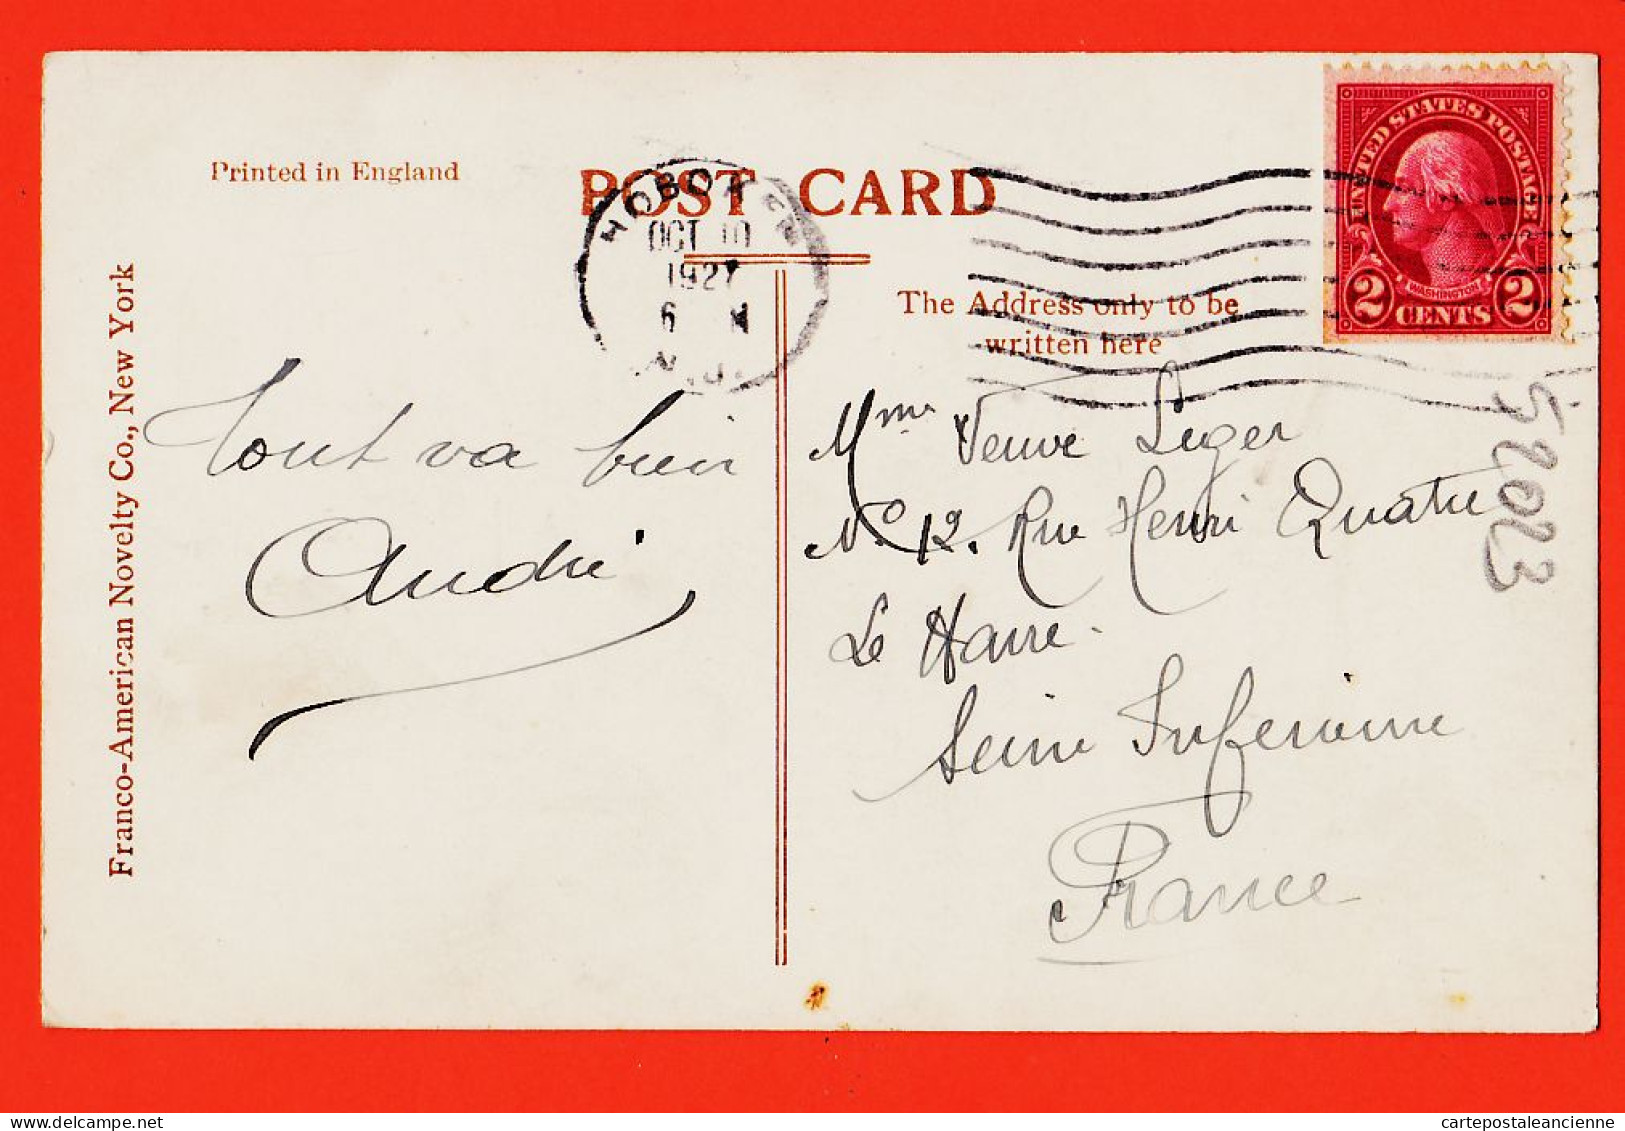 Printed in England
POST CARD
HOBOKEN
OCT 10
1927
6 M
N.J.
UNITED STATES POSTAGE
WASHINGTON
2 CENTS 2
The Address only to be
written here
Franco-American Novelty Co., New York
Tout va bien
André
Mme Veuve Leger
No. 12. Rue Henri Quatre
Le Havre.
Seine Inferieure
France
52023
cartepostaleancienne